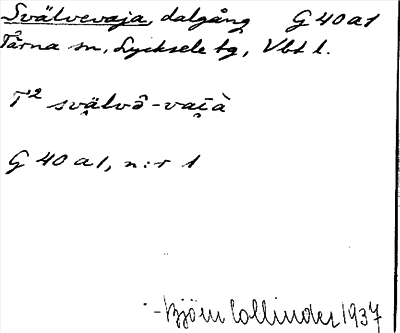 Svälvevaja, dalgång G 40 a 1
Tärna sn, Lycksele tg, Vbt l.
T² svä̭lvə̂-vai̭à
G 40 a 1, n:r 1
Björn Collinder 1937